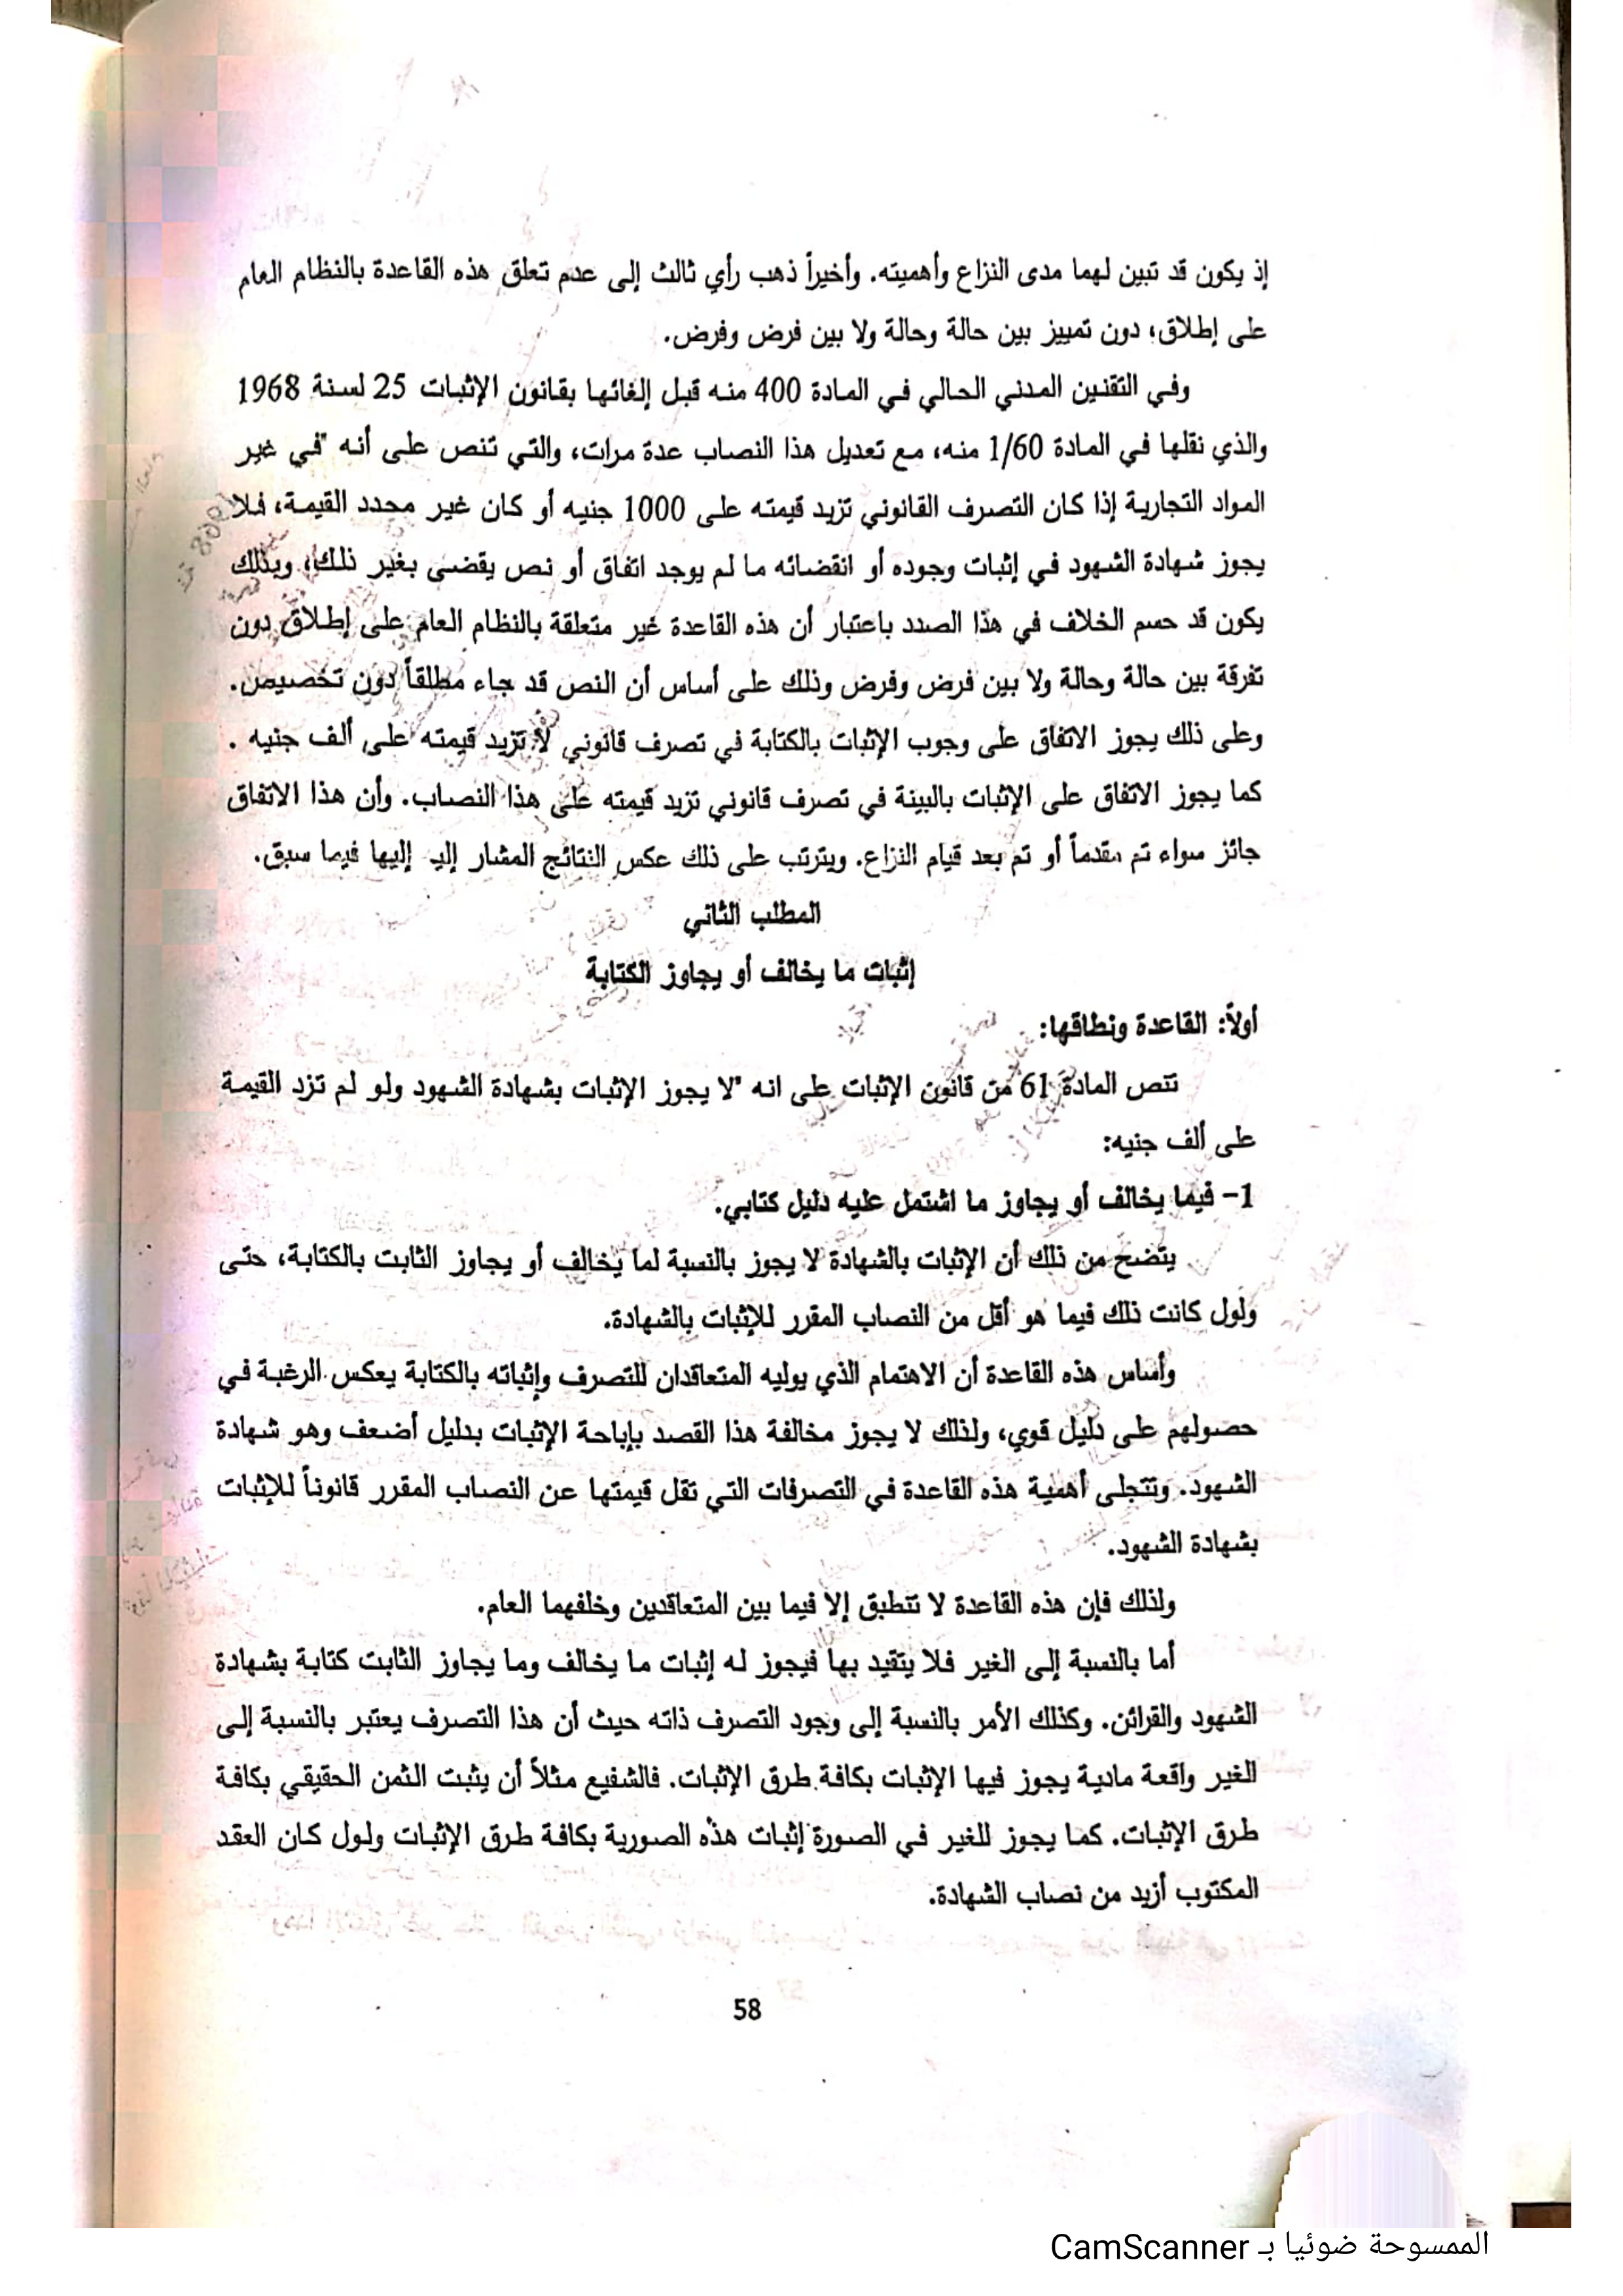 إذ يكون قد تبين لهما مدى النزاع وأهميته. وأخيراً ذهب رأي ثالث إلى عدم تعلق هذه القاعدة بالنظام العام
على إطلاق؛ دون تمييز بين حالة وحالة ولا بين فرض وفرض.
وفي التقنين المدني الحالي في المادة 400 منه قبل إلغائها بقانون الإثبات 25 لسنة 1968
والذي نقلها في المادة 1/60 منه، مع تعديل هذا النصاب عدة مرات، والتي تنص على أنه "في غير
المواد التجارية إذا كان التصرف القانوني تزيد قيمته على 1000 جنيه أو كان غير محدد القيمة، فلا
يجوز شهادة الشهود في إثبات وجوده أو انقضائه ما لم يوجد اتفاق أو نص يقضى بغير ذلك؛ وبذلك
يكون قد حسم الخلاف في هذا الصدد باعتبار أن هذه القاعدة غير متعلقة بالنظام العام على إطلاق دون
تفرقة بين حالة وحالة ولا بين فرض وفرض وذلك على أساس أن النص قد جاء مطلقاً دون تخصيص.
وعلى ذلك يجوز الاتفاق على وجوب الإثبات بالكتابة في تصرف قانوني لا تزيد قيمته على ألف جنيه .
كما يجوز الاتفاق على الإثبات بالبينة في تصرف قانوني تزيد قيمته على هذا النصاب. وأن هذا الاتفاق
جائز سواء تم مقدماً أو تم بعد قيام النزاع. ويترتب على ذلك عكس النتائج المشار إليه إليها فيما سبق.
المطلب الثاني
إثبات ما يخالف أو يجاوز الكتابة
أولاً: القاعدة ونطاقها:
تنص المادة 61 من قانون الإثبات على انه "لا يجوز الإثبات بشهادة الشهود ولو لم تزد القيمة
على ألف جنيه:
1- فيما يخالف أو يجاوز ما اشتمل عليه دليل كتابي.
يتضح من ذلك أن الإثبات بالشهادة لا يجوز بالنسبة لما يخالف أو يجاوز الثابت بالكتابة، حتى
ولول كانت ذلك فيما هو أقل من النصاب المقرر للإثبات بالشهادة.
وأساس هذه القاعدة أن الاهتمام الذي يوليه المتعاقدان للتصرف وإثباته بالكتابة يعكس الرغبة في
حصولهم على دليل قوي، ولذلك لا يجوز مخالفة هذا القصد بإباحة الإثبات بدليل أضعف وهو شهادة
الشهود. وتتجلى أهمية هذه القاعدة في التصرفات التي تقل قيمتها عن النصاب المقرر قانوناً للإثبات
بشهادة الشهود.
ولذلك فإن هذه القاعدة لا تتطبق إلا فيما بين المتعاقدين وخلفهما العام.
أما بالنسبة إلى الغير فلا يتقيد بها فيجوز له إثبات ما يخالف وما يجاوز الثابت كتابة بشهادة
الشهود والقرائن. وكذلك الأمر بالنسبة إلى وجود التصرف ذاته حيث أن هذا التصرف يعتبر بالنسبة إلى
الغير واقعة مادية يجوز فيها الإثبات بكافة طرق الإثبات. فالشفيع مثلاً أن يثبت الثمن الحقيقي بكافة
طرق الإثبات. كما يجوز للغير في الصورة إثبات هذه الصورية بكافة طرق الإثبات ولول كان العقد
المكتوب أزيد من نصاب الشهادة.
58
الممسوحة ضوئيا بـ CamScanner